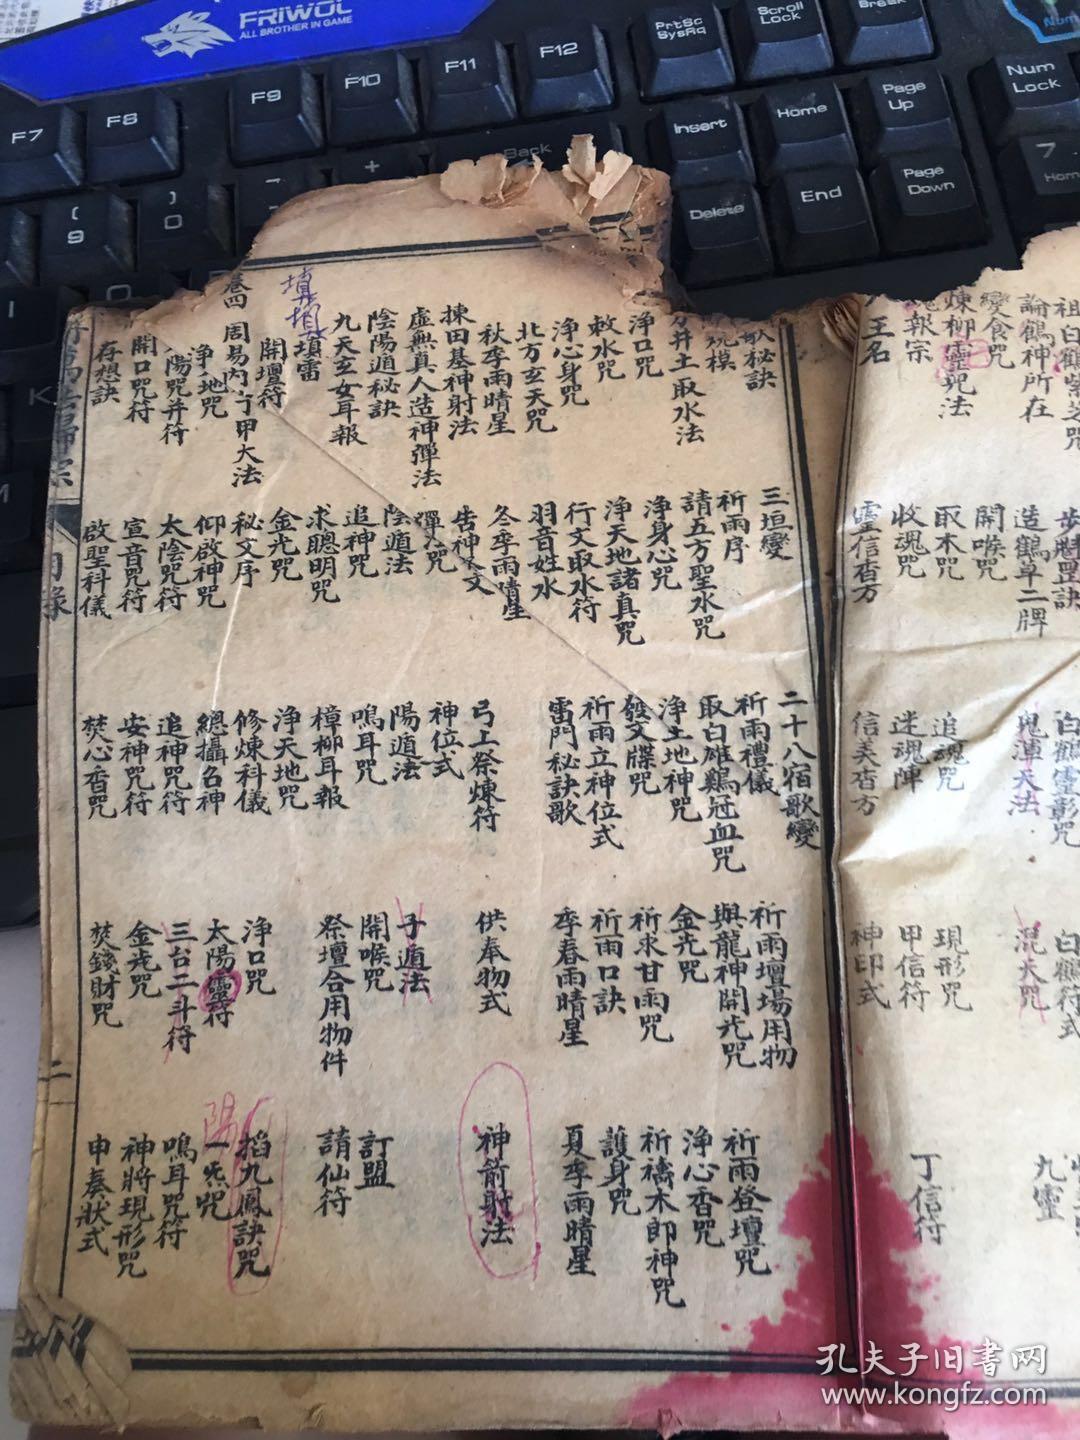 FRIWOL
ALL BROTHER IN GAME
PrtSc
SysRq
Scroll
Lock
Break
F7
F8
F9
F10
F11
F12
Insert
Home
Page
Up
Num
Lock
Delete
End
Page
Down
7
Home
Back
祖白鶴紫芝咒 步罡訣 白鶴靈彰咒 白鶴符式
論鶴神所在 造鶴單二牌 鬼渾天法 混天咒 九靈
變食咒 開喉咒
煉柳靈兒法 取木咒 追魂咒 現形咒
報宗 收魂咒 迷魂陣 甲信符 丁信符
王名 靈信香方 信美香方 神印式
秘訣 三垣變 二十八宿歌變 祈雨壇場用物
規模 祈雨序 祈雨禮儀 與龍神開光咒 祈雨登壇咒
井土取水法 請五方聖水咒 取白雄鷄冠血咒 金光咒 淨心香咒
淨口咒 淨身心咒 淨土地神咒 祈求甘雨咒 祈禱木郎神咒
敕水咒 淨天地諸真咒 發文牒咒 祈雨口訣 護身咒
淨心身咒 行文取水符 祈雨立神位式 季春雨晴星 夏季雨晴星
北方玄天咒 羽音姓水 雷門秘訣歌
秋季雨晴星 冬季雨晴星
揀田基神射法 告神文 弓上祭煉符 供奉物式 神箭射法
虛無真人造神彈法 彈咒 神位式
陰陽遁秘訣 陰遁法 陽遁法 子遁法
九天玄女耳報 追神咒 鳴耳咒 開喉咒 訂盟
填雷 求聰明咒 樟柳耳報 祭壇合用物件 請仙符
填損
開壇符 金光咒 淨天地咒
卷四 周易內 甲大法 秘文序 修煉科儀 淨口咒 掐九鳳訣咒
淨地咒 仰啟神咒 總攝召神 太陽靈符 一炁咒
陽
陽咒并符 太陰咒符 追神咒符 三台二斗符 鳴耳咒符
開口咒符 宣音咒符 安神咒符 金光咒 神將現形咒
存想訣 啟聖科儀 焚心香咒 焚錢財咒 申奏狀式
萬法歸宗 目錄 二
孔夫子旧書网
www.kongfz.com